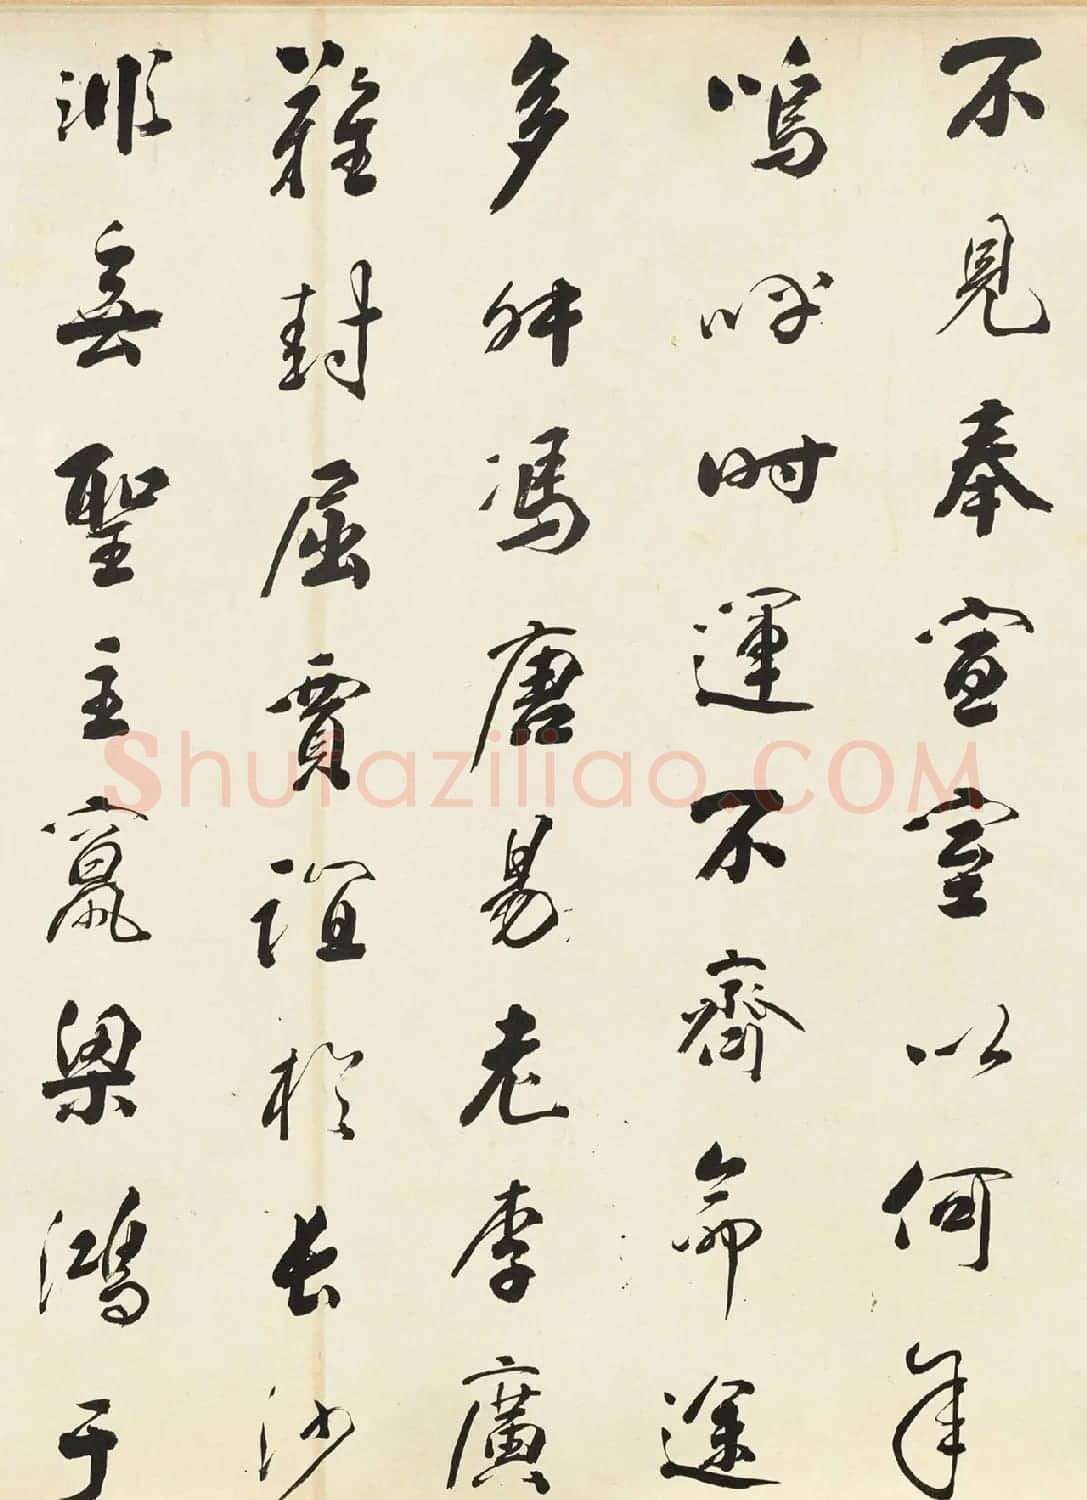 不見奉宣室以何年
嗚呼時運不齊命途
多舛馮唐易老李廣
難封屈賈誼於長沙
非無聖主竄梁鴻于
Shufaziliao.COM